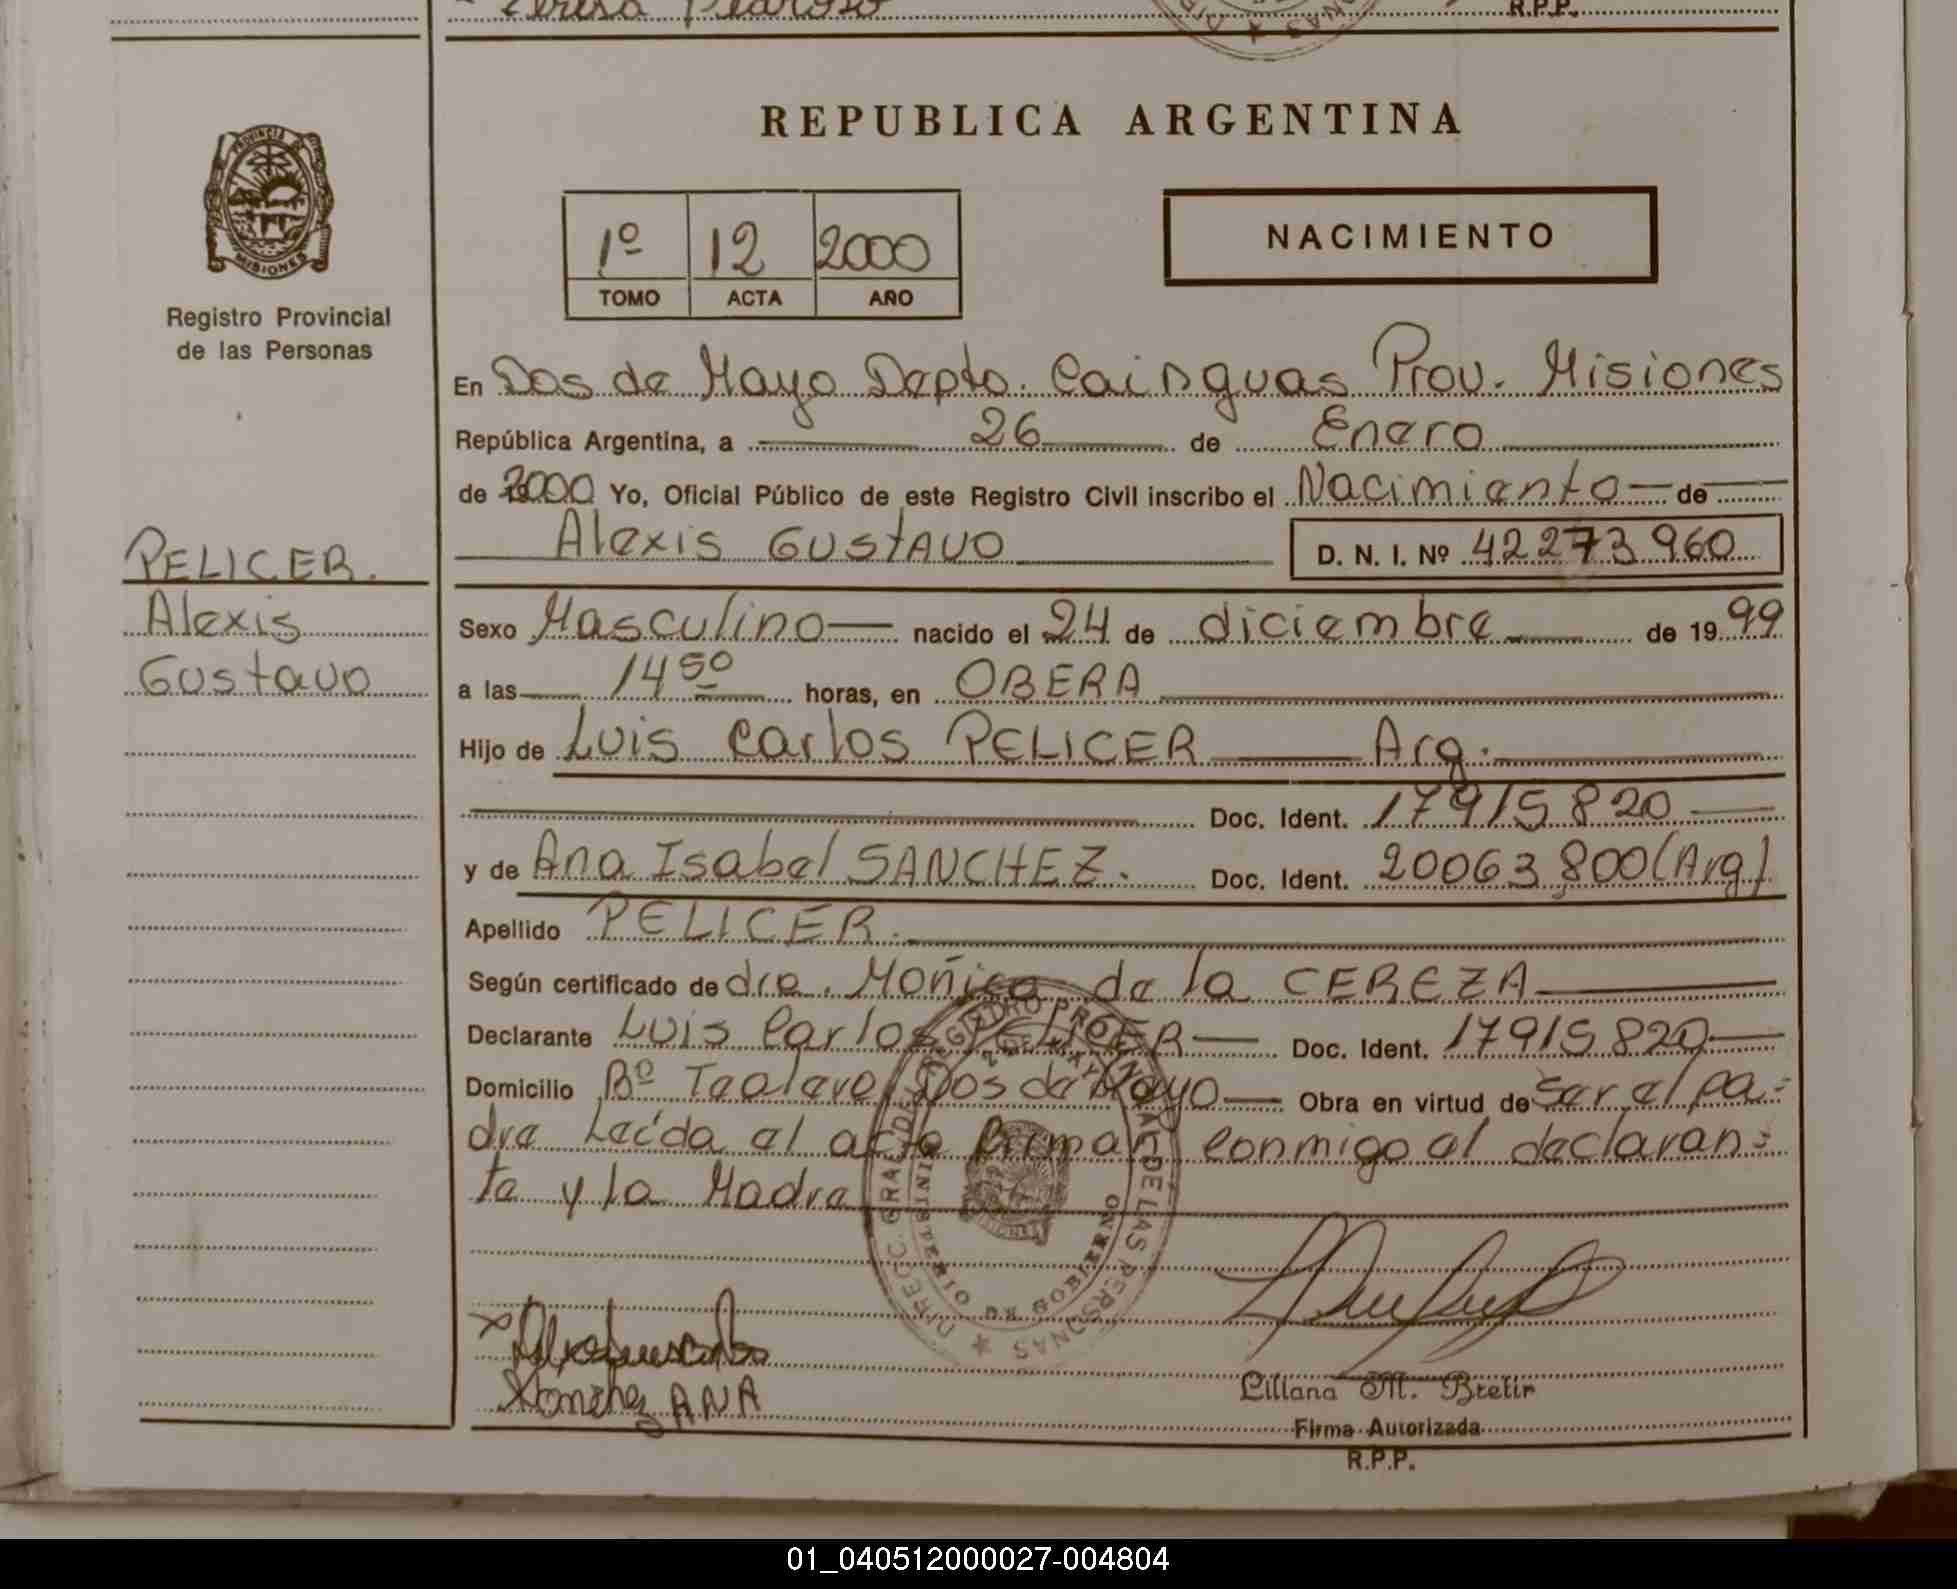 Teresa Pedroso
R.P.P.
REPUBLICA ARGENTINA
PROVINCIA DE
MISIONES
Registro Provincial
de las Personas
1º 12 2000
TOMO ACTA AÑO
NACIMIENTO
En Dos de Mayo Depto. Cainguas Prov. Misiones
República Argentina, a 26 de Enero
de 2000 Yo, Oficial Público de este Registro Civil inscribo el Nacimiento de
Alexis GUSTAVO D. N. I. Nº 42273960
PELICER.
Alexis
Gustavo
Sexo Masculino nacido el 24 de diciembre de 1999
a las 14 50 horas, en OBERA
Hijo de Luis Carlos PELICER Arg.
Doc. Ident. 17915820
y de Ana Isabel SANCHEZ. Doc. Ident. 20063800 (Arg)
Apellido PELICER.
Según certificado de dra. Moñica de la CEREZA
Declarante Luis Carlos PELICER Doc. Ident. 17915820
Domicilio Bº Dos de Mayo Obra en virtud de ser el pa=
dre Leída el acta firman conmigo el declaran=
te y la Madre
DIRECC. GRAL. DEL REGISTRO PROVINCIAL DE LAS PERSONAS
2 DE MAYO
MINISTERIO DE GOBIERNO
Sanchez ANA
Liliana M. Bretin
Firma Autorizada
R.P.P.
01_040512000027-004804